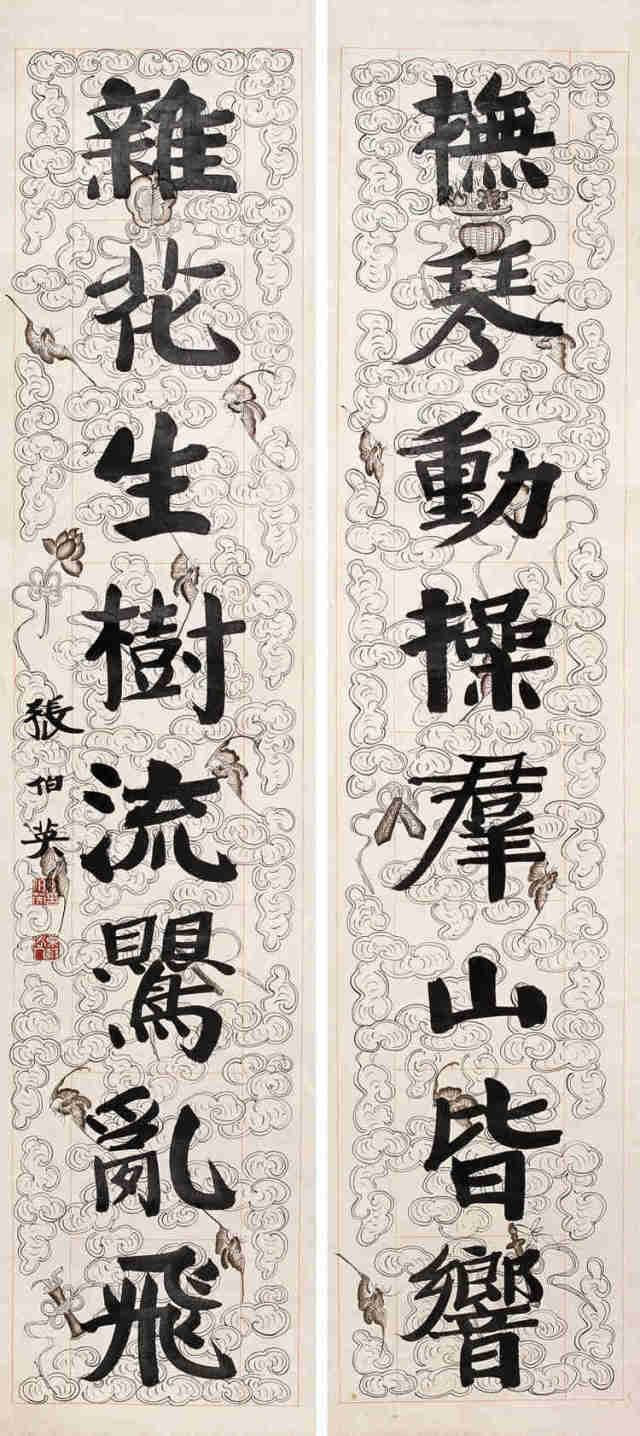 撫琴動操羣山皆響
雜花生樹流鶯亂飛
張伯英